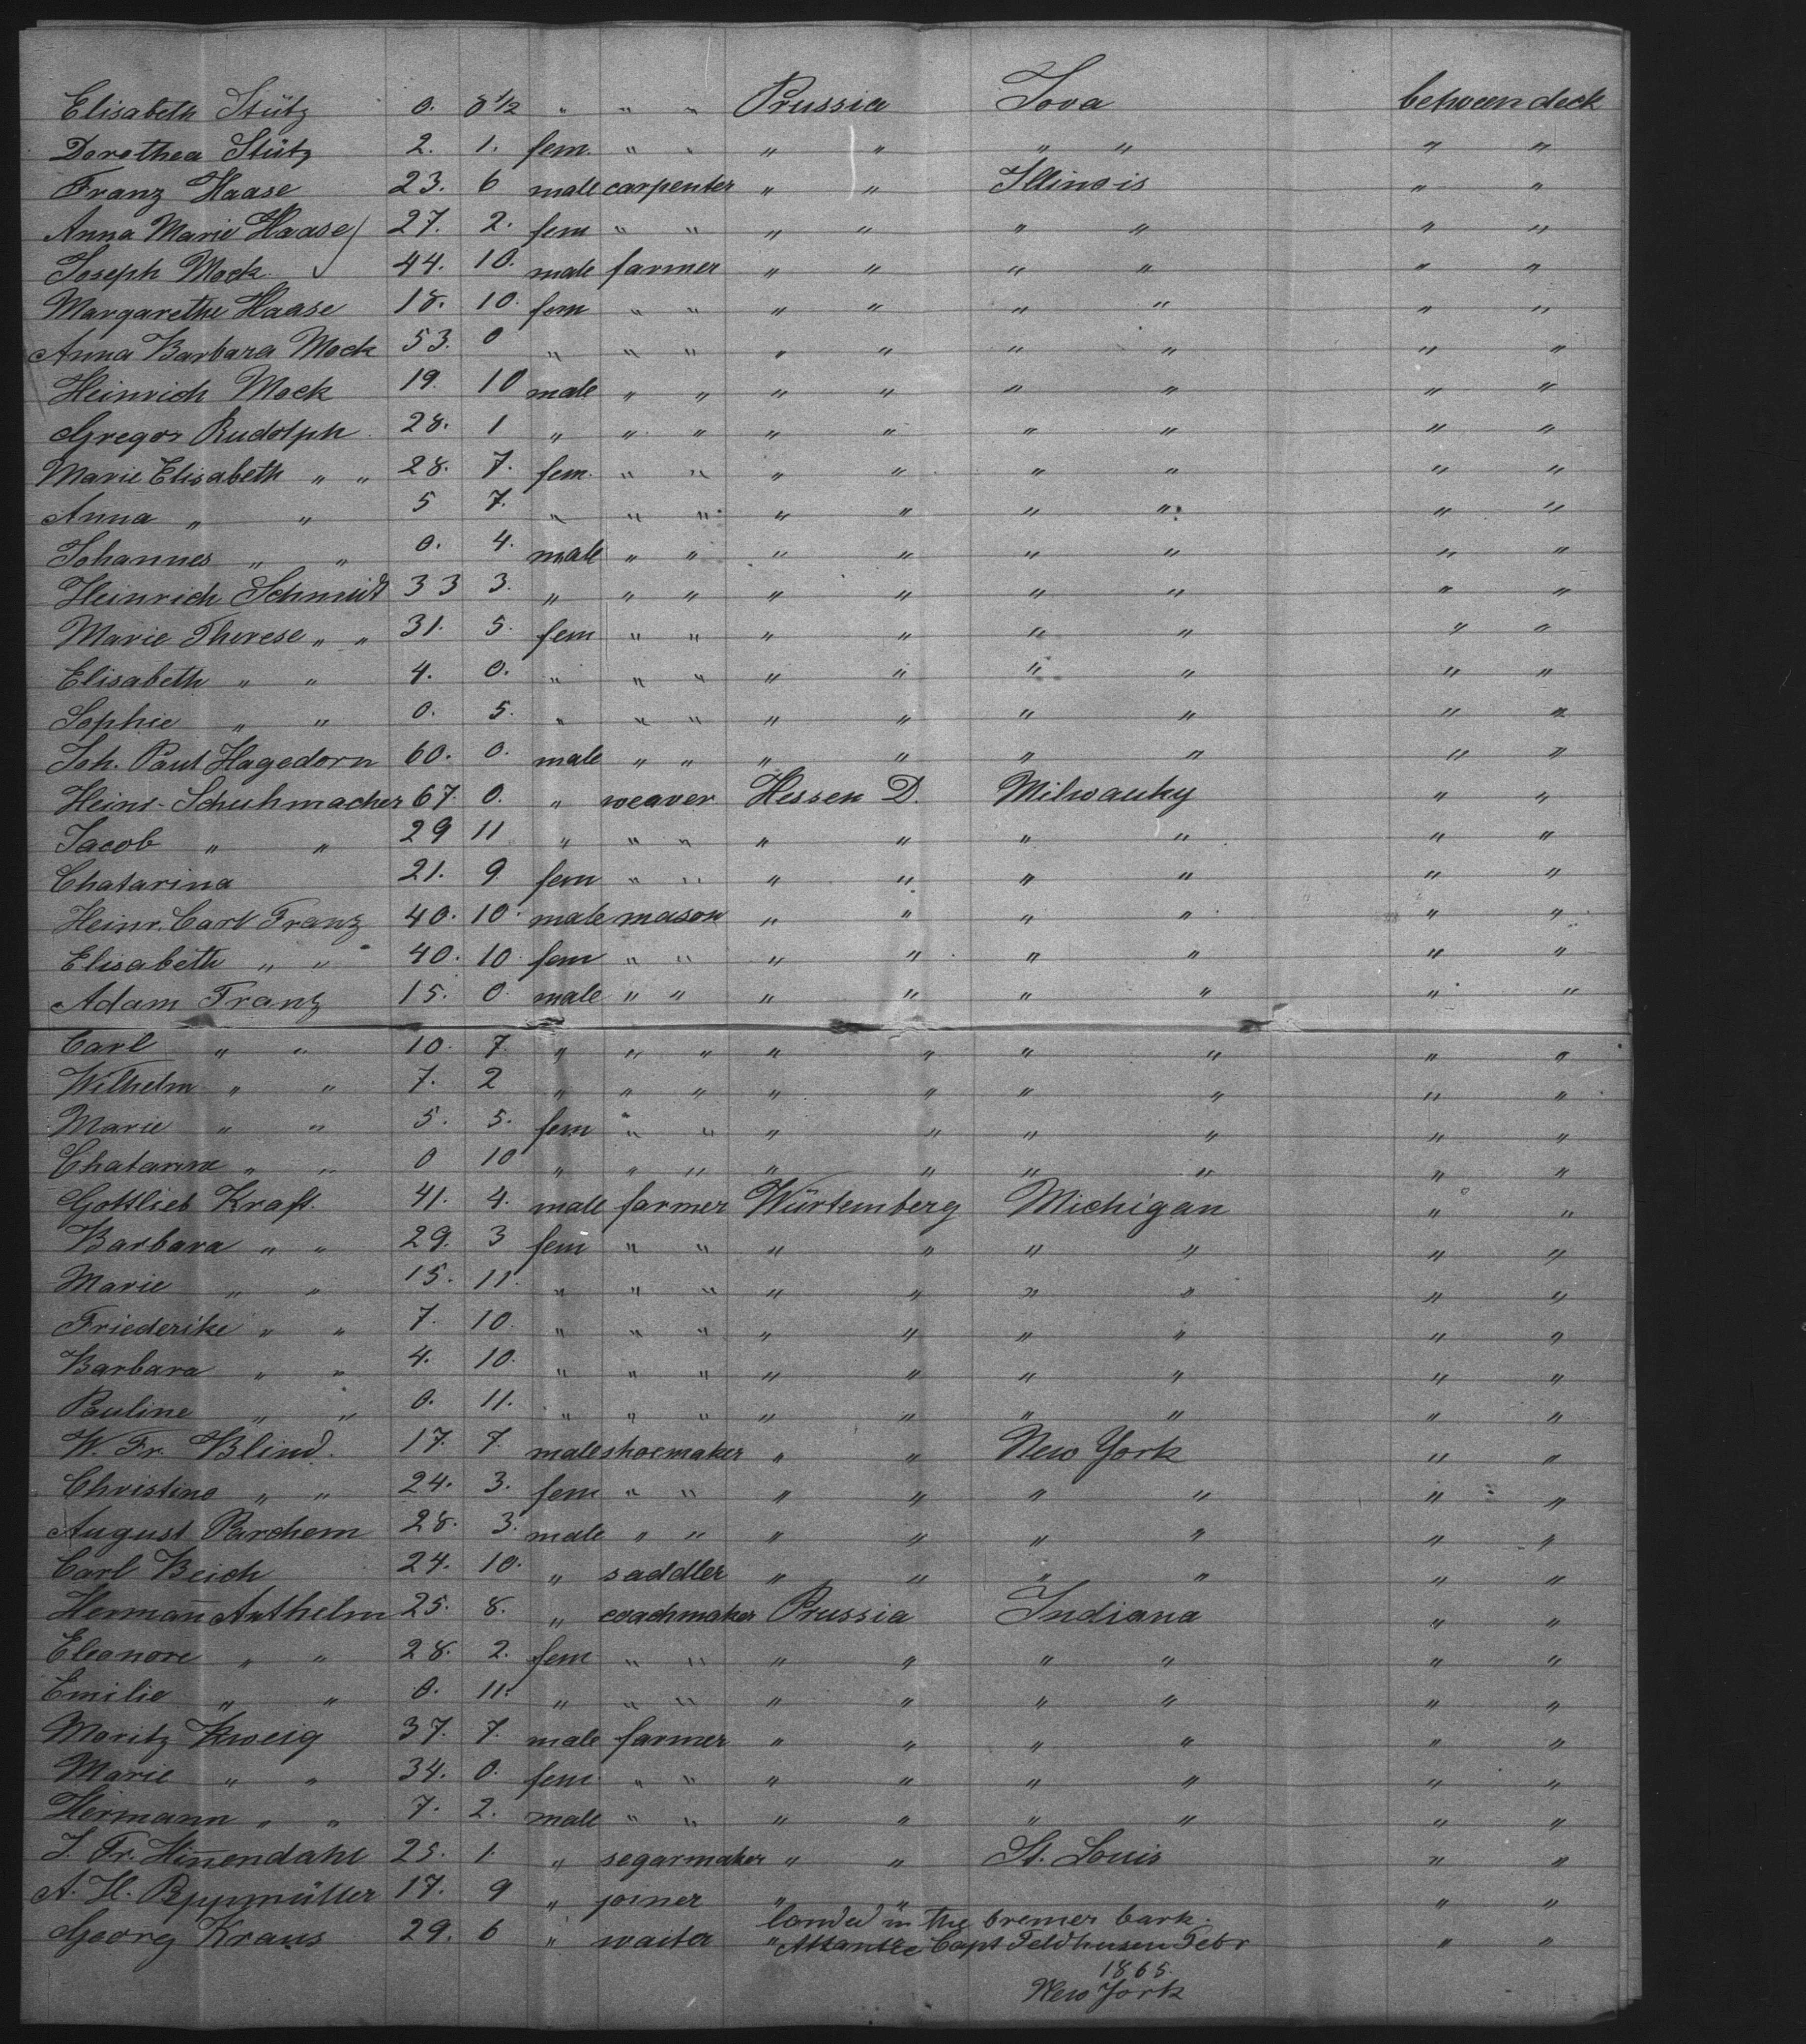 Elisabeth Stütz 0. 8 1/2 " " " Prussia Iova between deck
Dorothea Stütz 2. 1. fem. " " " " " " " "
Franz Haase 23. 6 male carpenter " " Illinois " "
Anna Marie Haase 27. 2. fem " " " " " " " "
Joseph Mock 44. 10. male farmer " " " " " "
Margarethe Haase 18. 10. fem " " " " " " " "
Anna Barbara Mock 53. 0 " " " " " " " " "
Heinrich Mock 19. 10 male " " " " " " " "
Gregor Rudolph 28. 1 " " " " " " " " "
Marie Elisabeth " " 28. 7. fem. " " " " " " " "
Anna " " 5 7. " " " " " " " " "
Johannes " " 0. 4. male " " " " " " " "
Heinrich Schmidt 33 3. " " " " " " " " "
Marie Therese " " 31. 5. fem " " " " " " " "
Elisabeth " " 4. 0. " " " " " " " " "
Sophie " " 0. 5. " " " " " " " " "
Joh. Paul Hagedorn 60. 0. male " " " " " " " "
Heinr. Schuhmacher 67. 0. " weaver Hessen D. Milwauky " "
Jacob " " 29 11 " " " " " " " " "
Chatarina 21. 9 fem " " " " " " " "
Heinr. Carl Franz 40. 10. male mason " " " " " "
Elisabeth " " 40. 10. fem " " " " " " " "
Adam Franz 15. 0. male " " " " " " " "
Carl " " 10. 7. " " " " " " " " "
Wilhelm " " 7. 2 " " " " " " " " "
Marie " " 5. 5. fem " " " " " " " "
Chatarine " " 0 10 " " " " " " " " "
Gottlieb Kraft. 41. 4. male farmer Würtemberg Michigan " "
Barbara " " 29. 3 fem " " " " " " " "
Marie " " 15. 11. " " " " " " " " "
Friederike " " 7. 10. " " " " " " " " "
Barbara " " 4. 10. " " " " " " " " "
Pauline " " 0. 11. " " " " " " " " "
W. Fr. Blind. 17. 7 male shoemaker " " New York " "
Christine " " 24. 3. fem " " " " " " " "
August Parchem 28. 3. male " " " " " " " "
Carl Beich 24. 10. " saddler " " " " " "
Hermañ Anthelm 25. 8. " coachmaker Prussia Indiana " "
Eleonore " " 28. 2. fem " " " " " " " "
Emilie " " 0. 11. " " " " " " " " "
Moritz Zweig 37. 7. male farmer " " " " " "
Marie " " 34. 0. fem " " " " " " " "
Hermann " " 7. 2. male " " " " " " " "
J. Fr. Hiñendahl 25. 1. " segarmaker " " St. Louis " "
A. H. Peppmüller 17. 9 " joiner " " " "
landed in the bremer bark.
Georg Kraus 29. 6 " waiter " Atlantic Capt Feldhusen Febr " "
1865.
New York